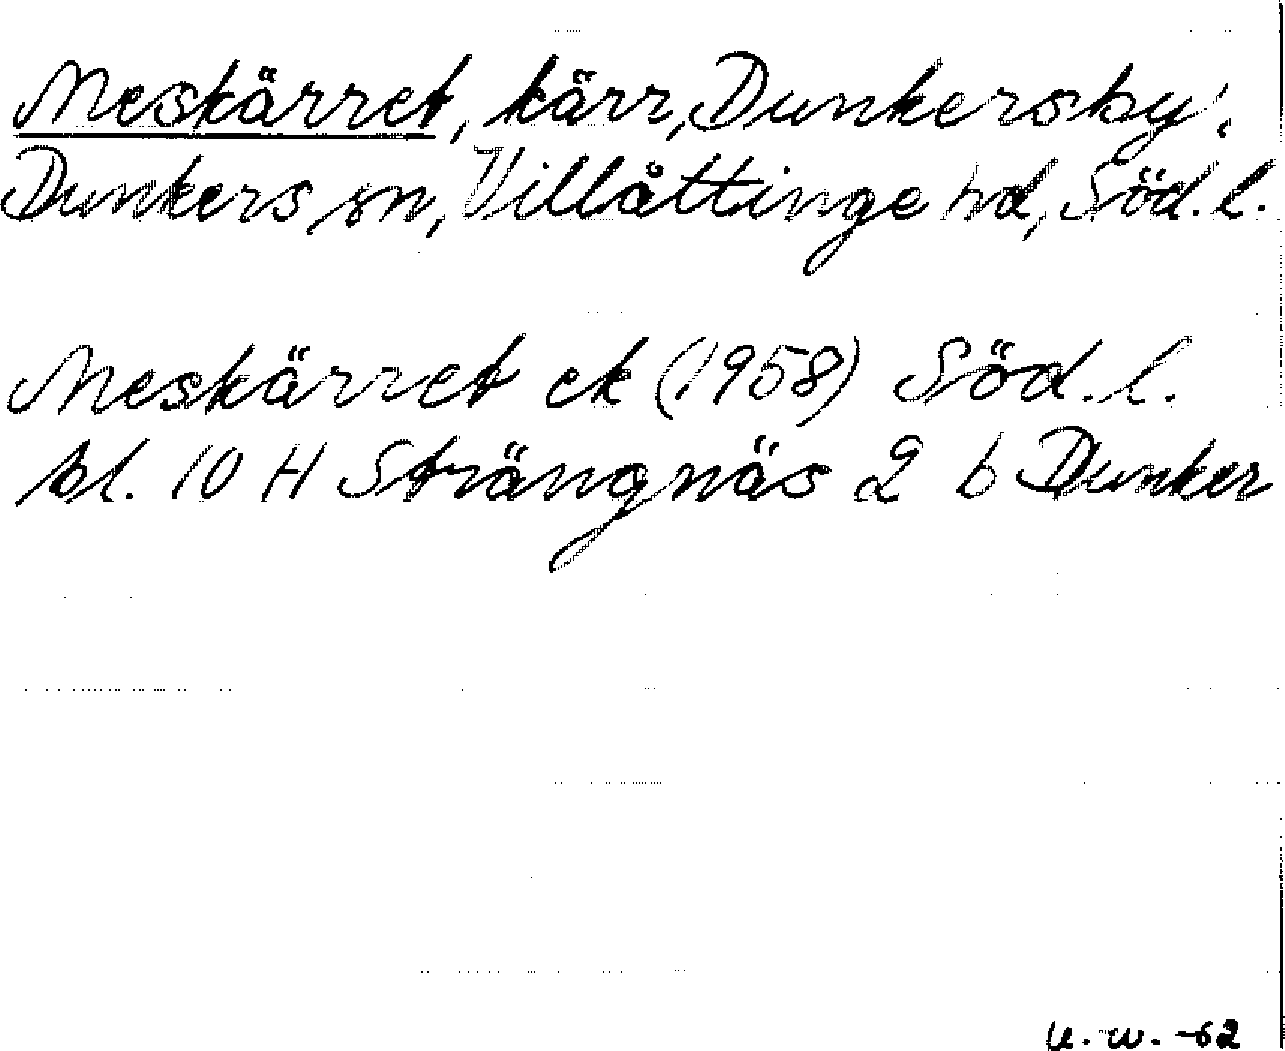 Meskärret, kärr, Dunkersby,
Dunkers sn, Villåttinge hd, Söd. l.
Meskärret ek (1958) Söd. l.
bl. 10 H Strängnäs 2 b Dunker
U. W. -62